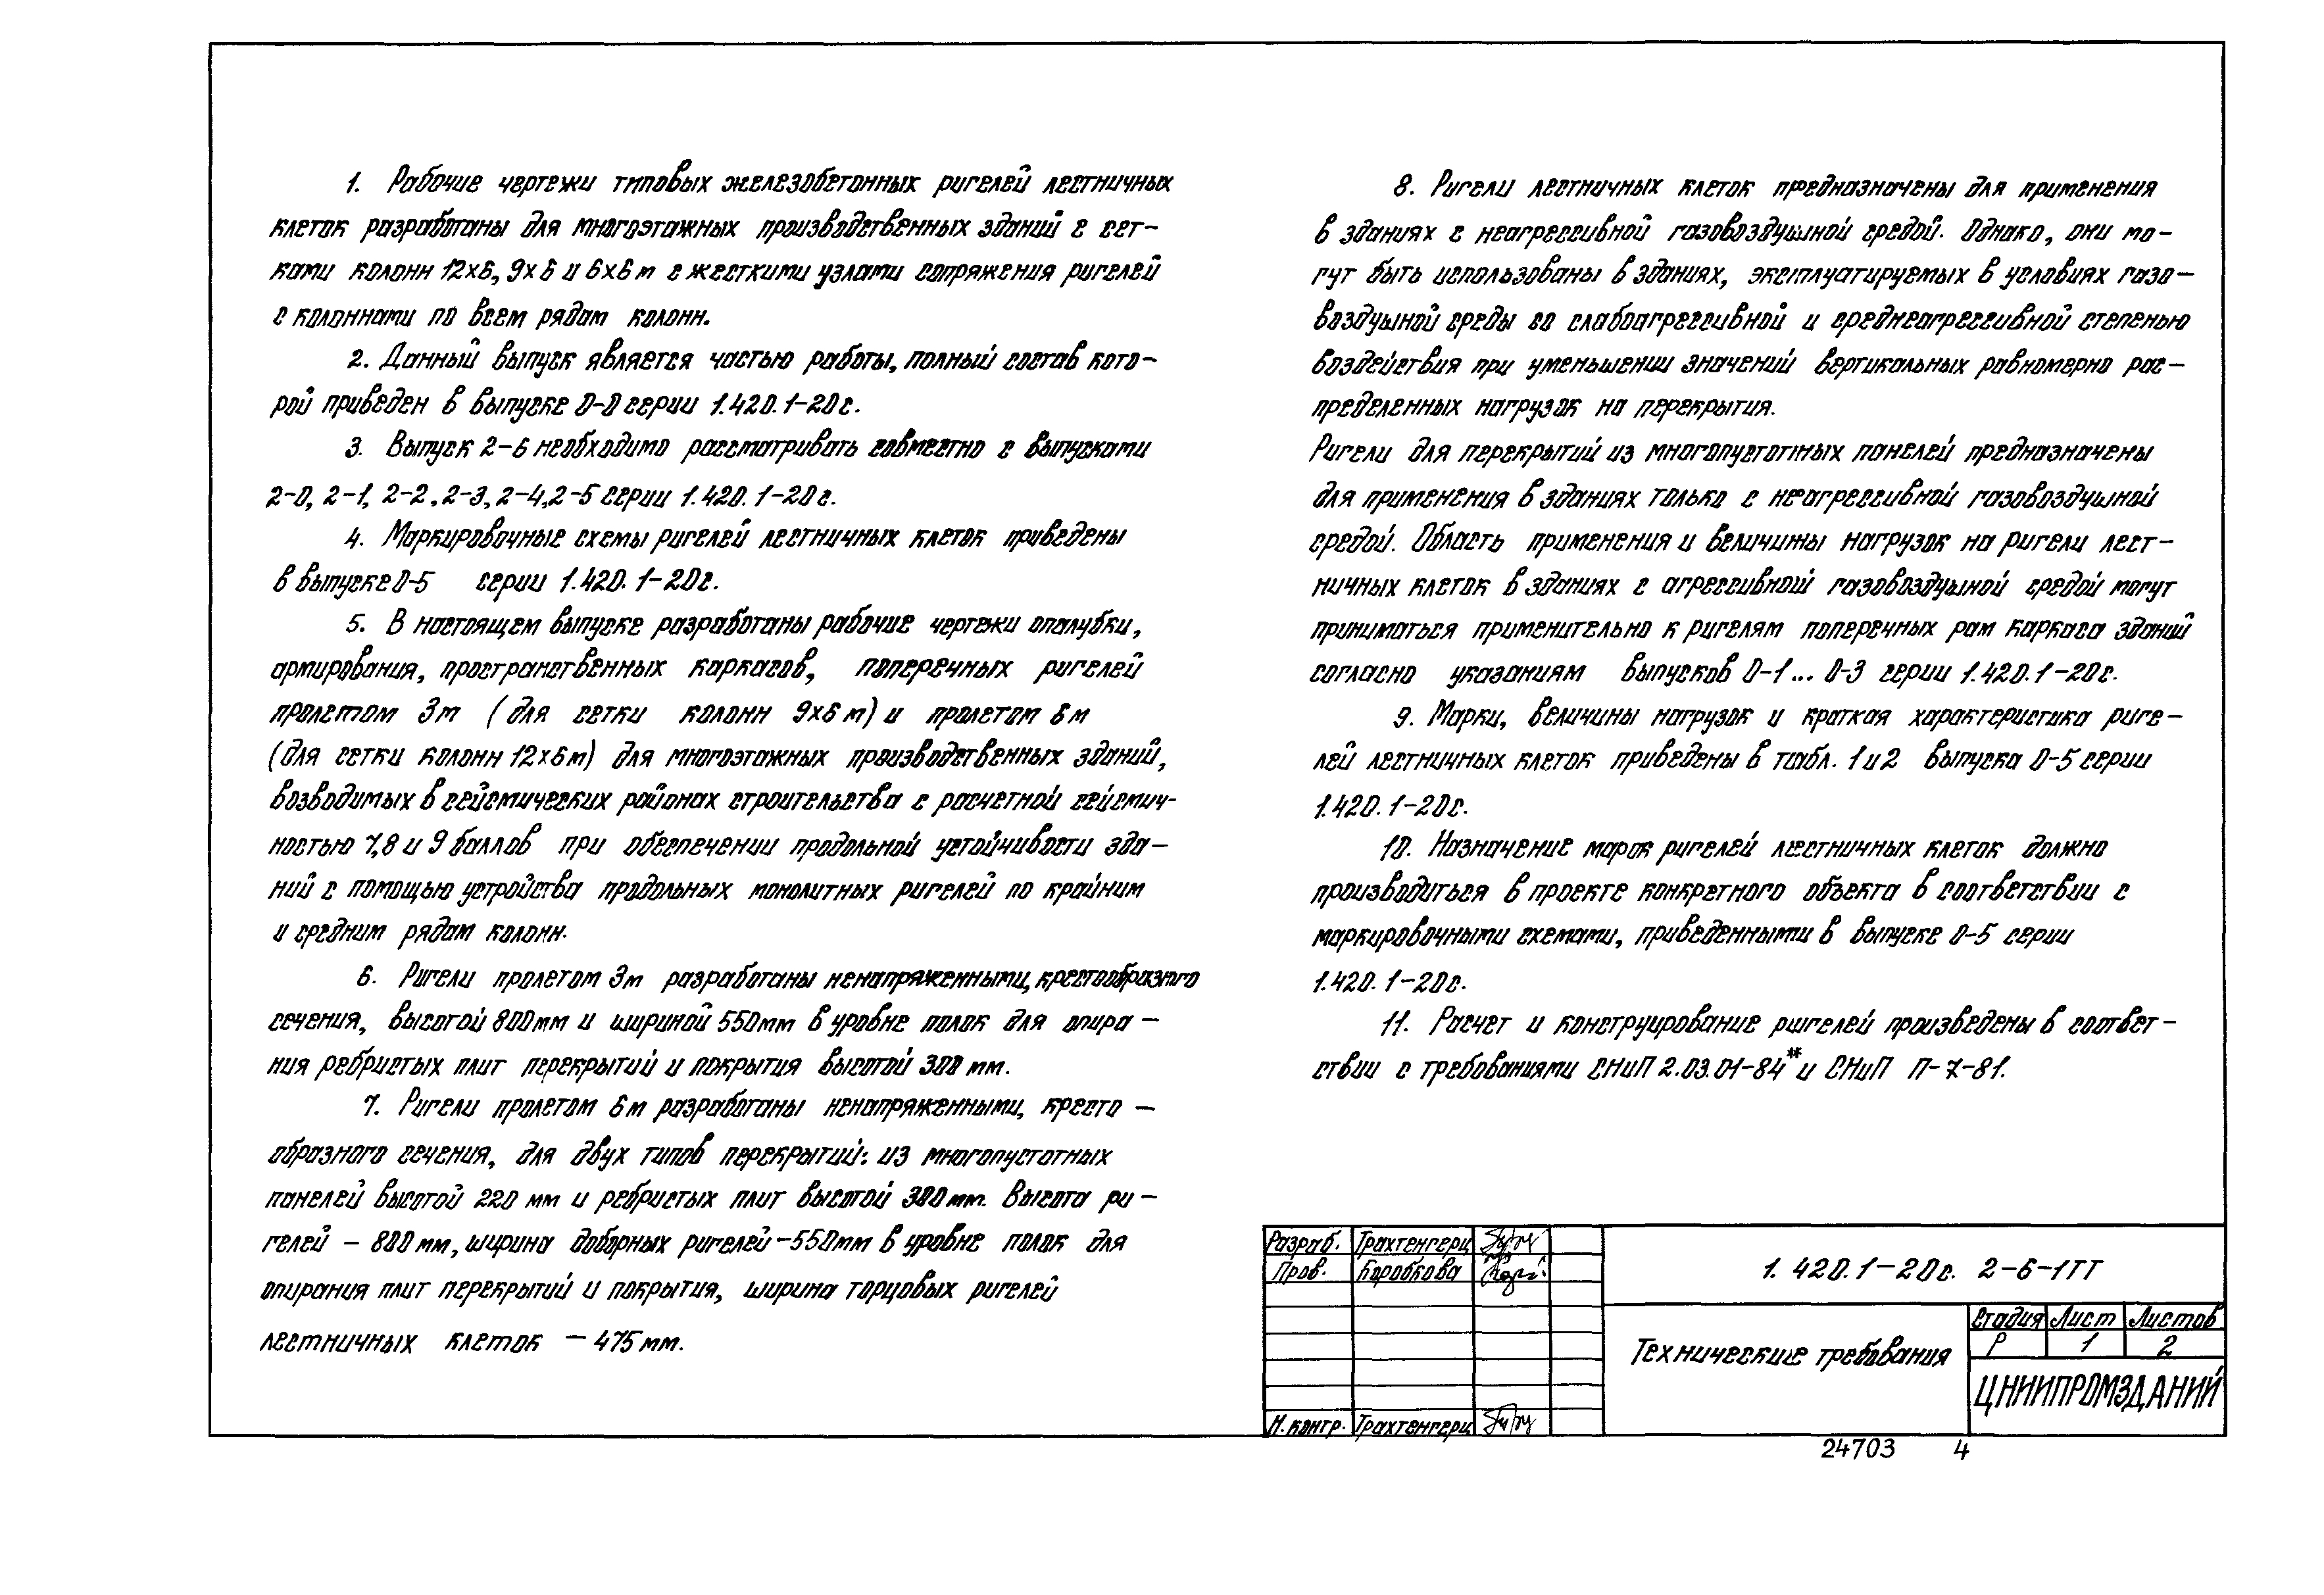 1. Рабочие чертежи типовых железобетонных ригелей лестничных
клеток разработаны для многоэтажных производственных зданий с сет-
ками колонн 12х6, 9х6 и 6х6 м с жесткими узлами сопряжения ригелей
с колоннами по всем рядам колонн.
2. Данный выпуск является частью работы, полный состав кото-
рой приведен в выпуске 0-0 серии 1.420.1-20с.
3. Выпуск 2-6 необходимо рассматривать совместно с выпусками
2-0, 2-1, 2-2, 2-3, 2-4, 2-5 серии 1.420.1-20с.
4. Маркировочные схемы ригелей лестничных клеток приведены
в выпуске 0-5 серии 1.420.1-20с.
5. В настоящем выпуске разработаны рабочие чертежи опалубки,
армирования, пространственных каркасов, поперечных ригелей
пролетом 3м (для сетки колонн 9х6 м) и пролетом 6 м
(для сетки колонн 12х6м) для многоэтажных производственных зданий,
возводимых в сейсмических районах строительства с расчетной сейсмич-
ностью 7,8 и 9 баллов при обеспечении продольной устойчивости зда-
ний с помощью устройства продольных монолитных ригелей по крайним
и средним рядам колонн.
6. Ригели пролетом 3м разработаны ненапряженными, крестообразного
сечения, высотой 800мм и шириной 550мм в уровне полок для опира-
ния ребристых плит перекрытий и покрытия высотой 300 мм.
7. Ригели пролетом 6м разработаны ненапряженными, кресто-
образного сечения, для двух типов перекрытий: из многопустотных
панелей высотой 220 мм и ребристых плит высотой 300мм. Высота ри-
гелей - 800 мм, ширина доборных ригелей - 550мм в уровне полок для
опирания плит перекрытий и покрытия, ширина торцовых ригелей
лестничных клеток - 475 мм.
8. Ригели лестничных клеток предназначены для применения
в зданиях с неагрессивной газовоздушной средой. Однако, они мо-
гут быть использованы в зданиях, эксплуатируемых в условиях газо-
воздушной среды со слабоагрессивной и среднеагрессивной степенью
воздействия при уменьшении значений вертикальных равномерно рас-
пределенных нагрузок на перекрытия.
Ригели для перекрытий из многопустотных панелей предназначены
для применения в зданиях только с неагрессивной газовоздушной
средой. Область применения и величины нагрузок на ригели лест-
ничных клеток в зданиях с агрессивной газовоздушной средой могут
приниматься применительно к ригелям поперечных рам каркаса зданий
согласно указаниям выпусков 0-1... 0-3 серии 1.420.1-20с.
9. Марки, величины нагрузок и краткая характеристика риге-
лей лестничных клеток приведены в табл. 1 и 2 выпуска 0-5 серии
1.420.1-20с.
10. Назначение марок ригелей лестничных клеток должно
производиться в проекте конкретного объекта в соответствии с
маркировочными схемами, приведенными в выпуске 0-5 серии
1.420.1-20с.
11. Расчет и конструирование ригелей произведены в соответ-
ствии с требованиями СНиП 2.03.01-84* и СНиП П-7-81.
Разраб. Трахтенгерц
Пров. Коробкова
Н.контр. Трахтенгерц
1.420.1-20с. 2-6-1ТТ
Технические требования
Стадия Лист Листов
Р 1 2
ЦНИИПРОМЗДАНИЙ
24703 4